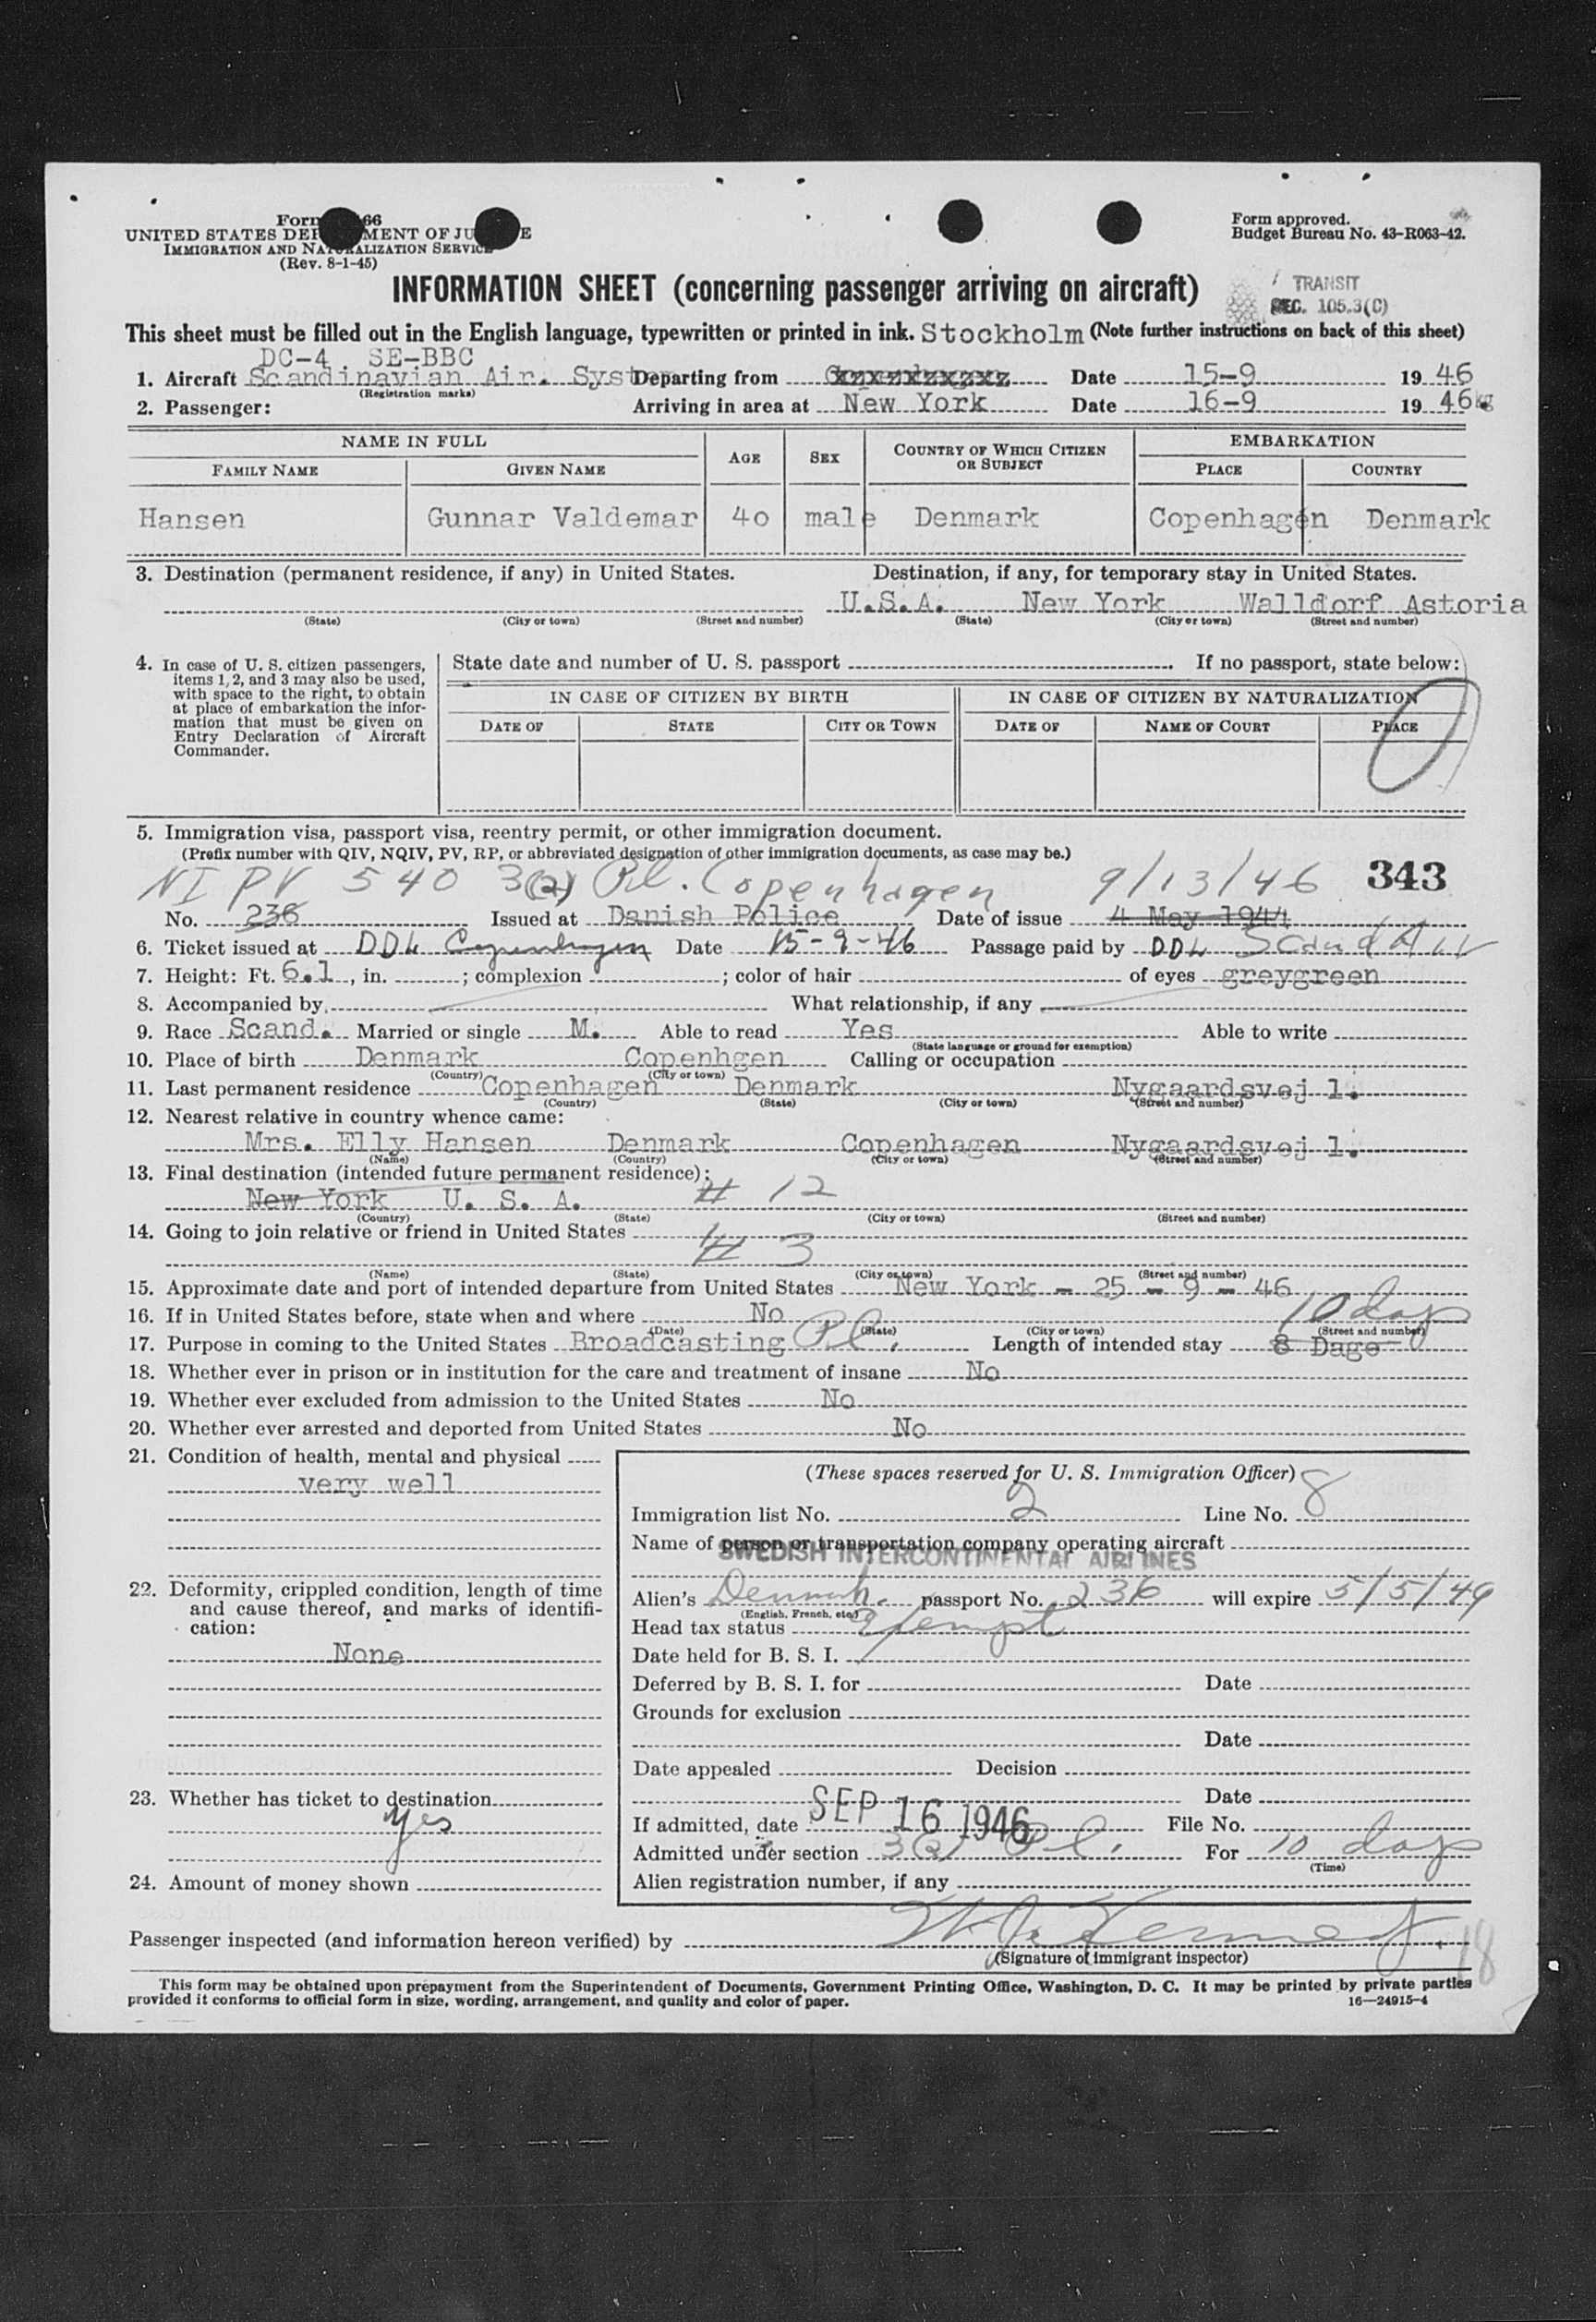 Form 66
UNITED STATES DEP MENT OF JU E
IMMIGRATION AND NATURALIZATION SERVICE
(Rev. 8-1-45)
Form approved.
Budget Bureau No. 43-R063-42.
INFORMATION SHEET (concerning passenger arriving on aircraft)
TRANSIT
SEC. 105.3(C)
This sheet must be filled out in the English language, typewritten or printed in ink. Stockholm (Note further instructions on back of this sheet)
DC-4 SE-BBC
1. Aircraft Scandinavian Air. System Departing from Date 15-9 19 46
(Registration marks)
2. Passenger: Arriving in area at New York Date 16-9 19 46
NAME IN FULL AGE SEX COUNTRY OF WHICH CITIZEN OR SUBJECT EMBARKATION
FAMILY NAME GIVEN NAME PLACE COUNTRY
Hansen Gunnar Valdemar 4o male Denmark Copenhagen Denmark
3. Destination (permanent residence, if any) in United States. Destination, if any, for temporary stay in United States.
U.S.A. New York Walldorf Astoria
(State) (City or town) (Street and number) (State) (City or town) (Street and number)
4. In case of U. S. citizen passengers, items 1, 2, and 3 may also be used, with space to the right, to obtain at place of embarkation the information that must be given on Entry Declaration of Aircraft Commander.
State date and number of U. S. passport If no passport, state below:
IN CASE OF CITIZEN BY BIRTH IN CASE OF CITIZEN BY NATURALIZATION
DATE OF STATE CITY OR TOWN DATE OF NAME OF COURT PLACE
5. Immigration visa, passport visa, reentry permit, or other immigration document.
(Prefix number with QIV, NQIV, PV, RP, or abbreviated designation of other immigration documents, as case may be.)
NI PV 540 3(2) Pl. Copenhagen 9/13/46 343
No. 236 Issued at Danish Police Date of issue 4 May 1944
6. Ticket issued at DDL Copenhagen Date 15-9-46 Passage paid by DDL Scand Air
7. Height: Ft. 6.1, in. ; complexion ; color of hair of eyes greygreen
8. Accompanied by, What relationship, if any
9. Race Scand. Married or single M. Able to read Yes Able to write
(State language or ground for exemption)
10. Place of birth Denmark Copenhgen Calling or occupation
(Country) (City or town)
11. Last permanent residence Copenhagen Denmark Nygaardsvej 1.
(Country) (State) (City or town) (Street and number)
12. Nearest relative in country whence came:
Mrs. Elly Hansen Denmark Copenhagen Nygaardsvej 1.
(Name) (Country) (City or town) (Street and number)
13. Final destination (intended future permanent residence):
New York U. S. A. # 12
(Country) (State) (City or town) (Street and number)
14. Going to join relative or friend in United States
# 3
(Name) (State) (City or town) (Street and number)
15. Approximate date and port of intended departure from United States New York - 25 - 9 - 46
16. If in United States before, state when and where No 10 days
(Date) (State) (City or town) (Street and number)
17. Purpose in coming to the United States Broadcasting Pl. Length of intended stay 8 Dage
18. Whether ever in prison or in institution for the care and treatment of insane No
19. Whether ever excluded from admission to the United States No
20. Whether ever arrested and deported from United States No
21. Condition of health, mental and physical
very well
22. Deformity, crippled condition, length of time and cause thereof, and marks of identification:
None
23. Whether has ticket to destination
Yes
24. Amount of money shown
(These spaces reserved for U. S. Immigration Officer)
Immigration list No. 2 Line No. 8
Name of person or transportation company operating aircraft
SWEDISH INTERCONTINENTAL AIRLINES
Alien's Denmark. passport No. 236 will expire 5/5/49
(English, French, etc.)
Head tax status Exempt
Date held for B. S. I.
Deferred by B. S. I. for Date
Grounds for exclusion
Date
Date appealed Decision
Date
If admitted, date SEP 16 1946 File No.
Admitted under section 3(2) Pl. For 10 days
(Time)
Alien registration number, if any
Passenger inspected (and information hereon verified) by
(Signature of immigrant inspector)
18
This form may be obtained upon prepayment from the Superintendent of Documents, Government Printing Office, Washington, D. C. It may be printed by private parties
provided it conforms to official form in size, wording, arrangement, and quality and color of paper.
16—24915-4